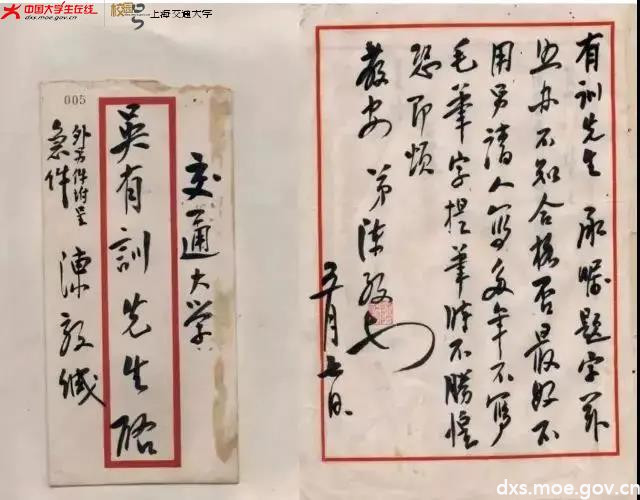 中国大学生在线
dxs.moe.gov.cn
上海交通大学
005
交通大学
吳有訓先生啓
外另件附呈
急件 陳毅缄
有训先生 承嘱题字
不知合格否最好不
用另请人写多年不写
毛筆字提筆時不勝惶
恐即颂
教安 弟陈毅
五月七日
dxs.moe.gov.cn